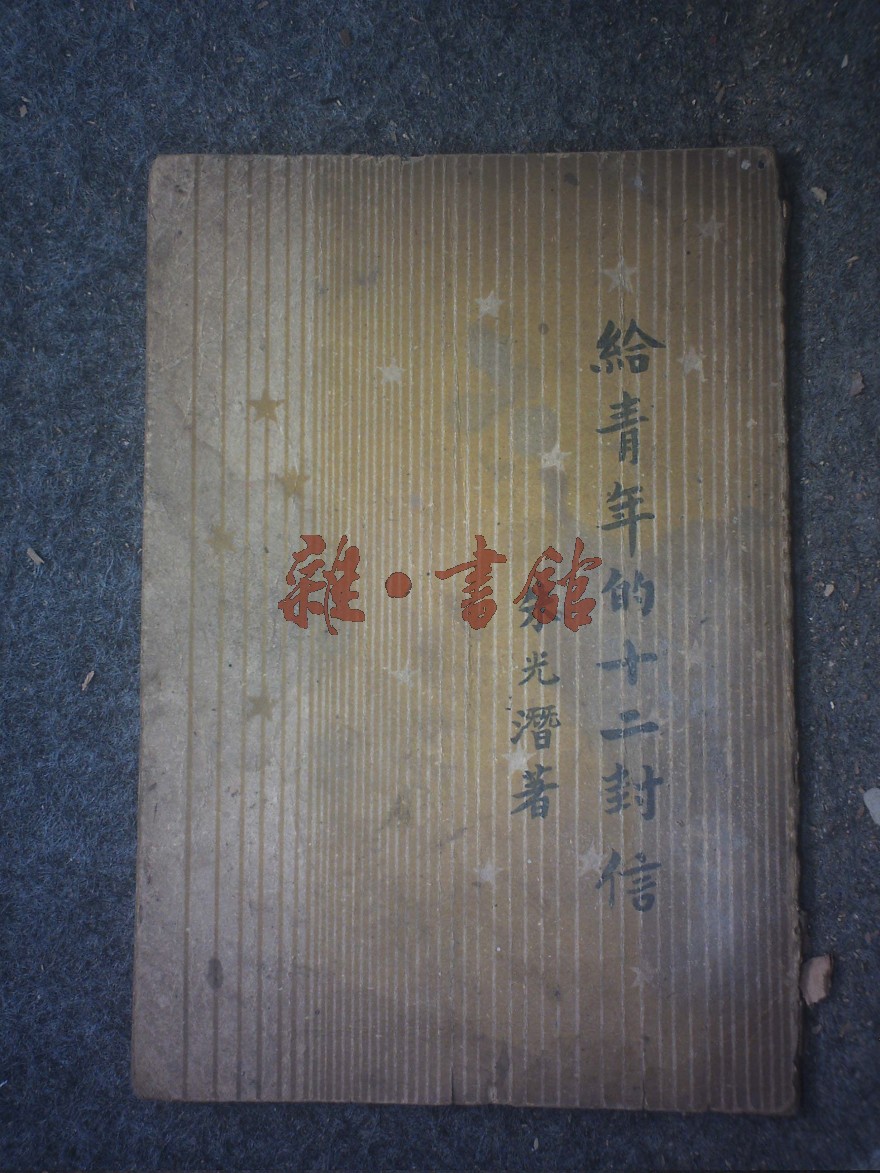 給青年的十二封信
朱光潛著
雜·書館